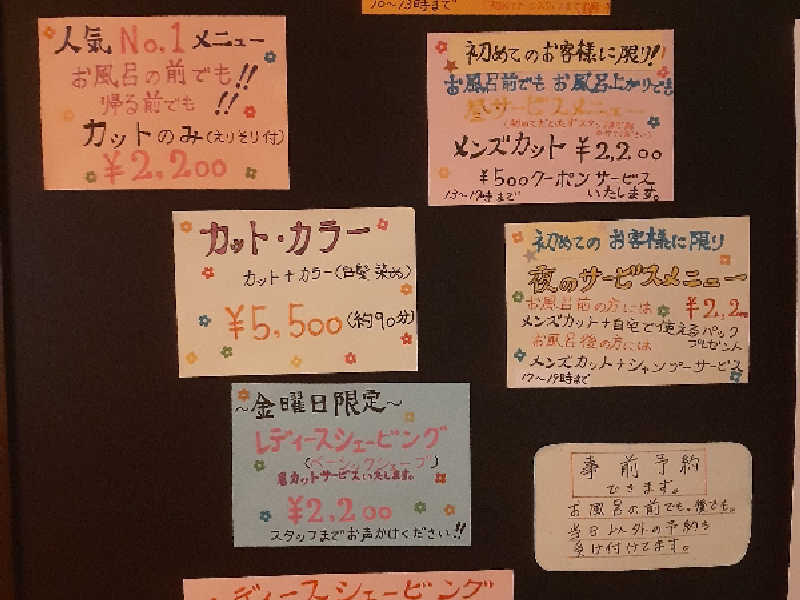 10~13時まで
人気 No.1 メニュー
お風呂の前でも!!
帰る前でも !!
カットのみ(えりそり付)
¥2,200
初めてのお客様に限り!
お風呂前でも お風呂上がりでも
昼サービスメニュー
メンズカット ¥2,200
¥500クーポンサービス
いたします。
13~17時まで
カット・カラー
カット+カラー(白髪染め)
¥5,500(約90分)
初めての お客様に限り
夜のサービスメニュー
お風呂前の方には ¥2,2
メンズカット+自宅で使えるパック
プレゼント
お風呂後の方には
メンズカット+シャンプーサービス
17~19時まで
~金曜日限定~
レディースシェービング
(ベーシックシェーブ)
眉カットサービスいたします。
¥2,200
スタッフまでお声かけください!!
事前予約
できます。
お風呂の前でも、後でも。
当日以外の予約も
受け付けてます。
レディースシェービング